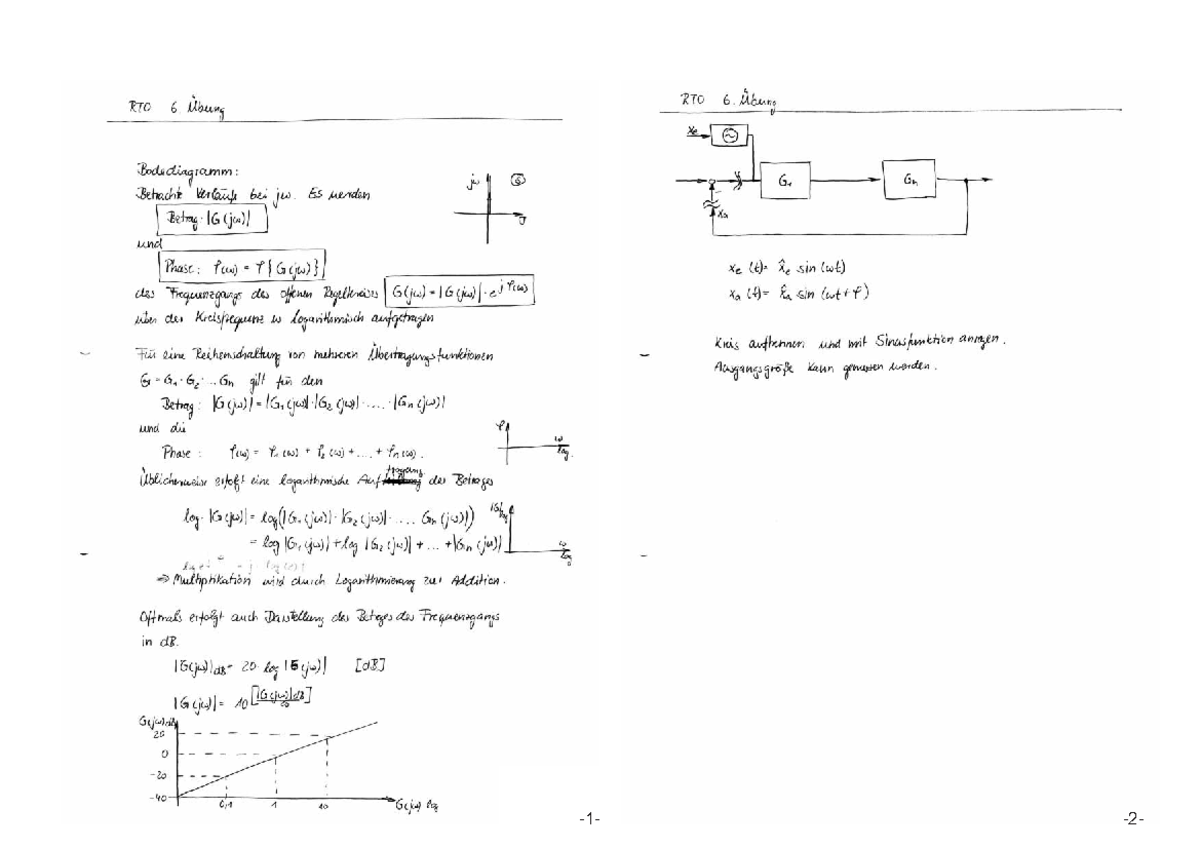 RTO 6. Übung
Bodediagramm:
Betrachte Verläufe bei jω. Es werden
jω
σ
Betrag: |G(jω)|
und
Phase: φ(ω) = φ{G(jω)}
des Frequenzgangs des offenen Regelkreises G(jω) = |G(jω)| · e^jφ(ω)
über der Kreisfrequenz ω logarithmisch aufgetragen
Für eine Reihenschaltung von mehreren Übertragungsfunktionen
G = G₁ · G₂ · ... Gn gilt für den
Betrag: |G(jω)| = |G₁(jω)| · |G₂(jω)| · .... · |Gn(jω)|
und die
Phase: φ(ω) = φ₁(ω) + φ₂(ω) + .... + φn(ω).
φ
ω
log.
Üblicherweise erfolgt eine logarithmische Auftragung des Betrages
log · |G(jω)| = log(|G₁(jω)| · |G₂(jω)| · .... Gn(jω)|)
= log |G₁(jω)| + log |G₂(jω)| + ... + |Gn(jω)|
|G|
log
ω
log
⇒ Multiplikation wird durch Logarithmierung zur Addition.
Oftmals erfolgt auch Darstellung des Betrages des Frequenzgangs
in dB.
|G(jω)|dB = 20 · log |G(jω)| [dB]
|G(jω)| = 10^[|G(jω)|dB / 20]
G(jω)dB
20
0
-20
-40
0,1 1 10
G(jω) log
-1-
RTO 6. Übung
xe
G₁
Gn
xa
xe (t) = x̂e sin (ωt)
xa (t) = x̂a sin (ωt + φ)
Kreis auftrennen und mit Sinusfunktion anregen.
Ausgangsgröße kann gemessen werden.
-2-